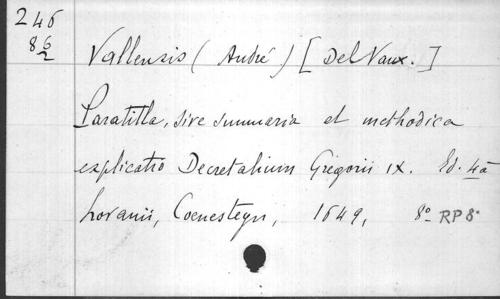 246
86
2
Vallensis (André) [Del Vaux.]
Paratitla, sive summaria et methodica
explicatio Decretalium Gregorii IX. Ed. 4a
Lovanii, Coenesteyn, 1649, 8° RP 8°